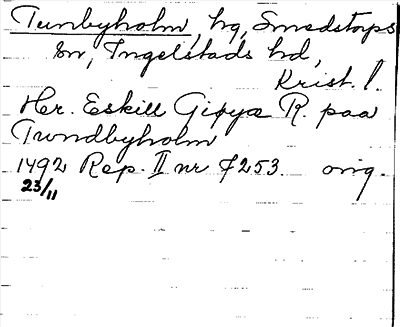 Tunbyholm, hg, Smedstorps
sn, Ingelstads hd,
Krist. l.
Her. Eskill Gipya R. paa
Twndbyholm
1492 Rep. II nr 7253. orig.
23/11